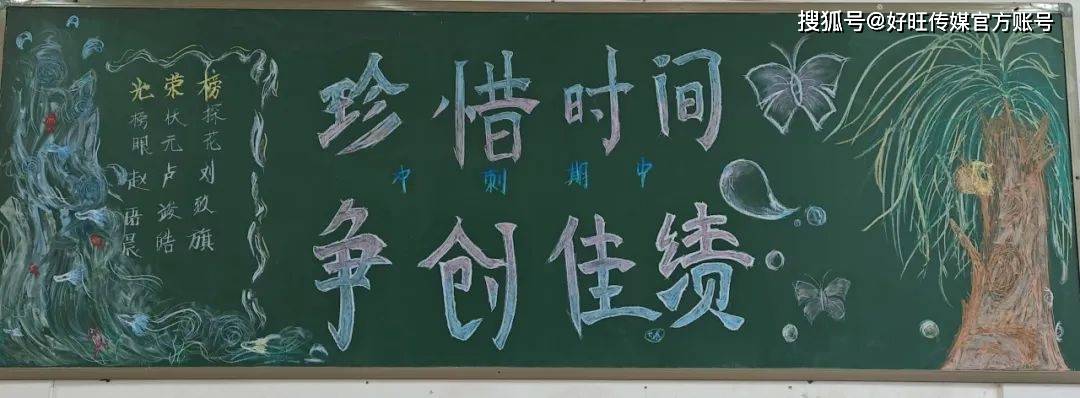 搜狐号@好旺传媒官方账号
光荣榜
榜眼赵晨
状元卢竣皓
探花刘致旗
珍惜时间
冲刺期中
争创佳绩